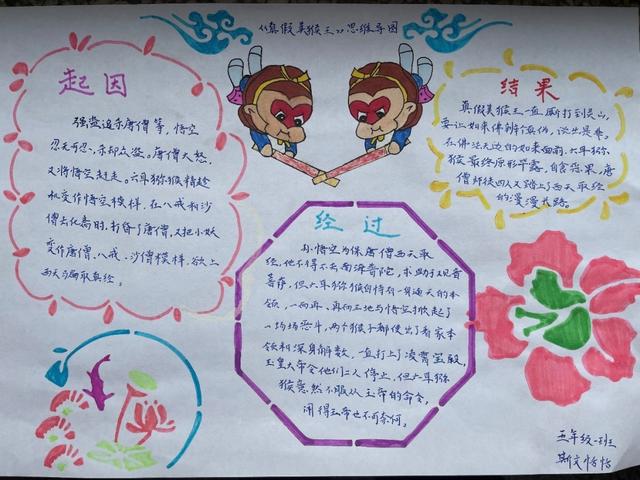 《真假美猴王》思维导图
起因
强盗追杀唐僧等，悟空
忍无可忍、杀却众盗。唐僧大怒，
又将悟空赶走。六耳猕猴精趁
机变作悟空模样，在八戒和沙
僧去化斋时，打昏了唐僧，又把小妖
变作唐僧、八戒、沙僧模样，欲上
西天骗取真经。
结果
真假美猴王一直厮打到灵山，
要让如来佛辨个真伪，说出是非。
在佛法无边的如来面前，六耳猕
猴最终原形毕露，自食恶果，唐
僧师徒四人又踏上了西天取经
的漫漫长路。
经过
孙悟空为保唐僧西天取
经，他不得不去南海普陀，求助于观音
菩萨，但六耳猕猴自恃有一身通天的本
领，一而再，再而三地与悟空掀起了
一场场恶斗，两个猴子都使出了看家本
领和浑身解数，一直打上了凌霄宝殿，
玉皇大帝令他们二人停止，但六耳猕
猴竟然不服从玉帝的命令，
闹得玉帝也不可奈何。
五年级一班
斯文恬恬